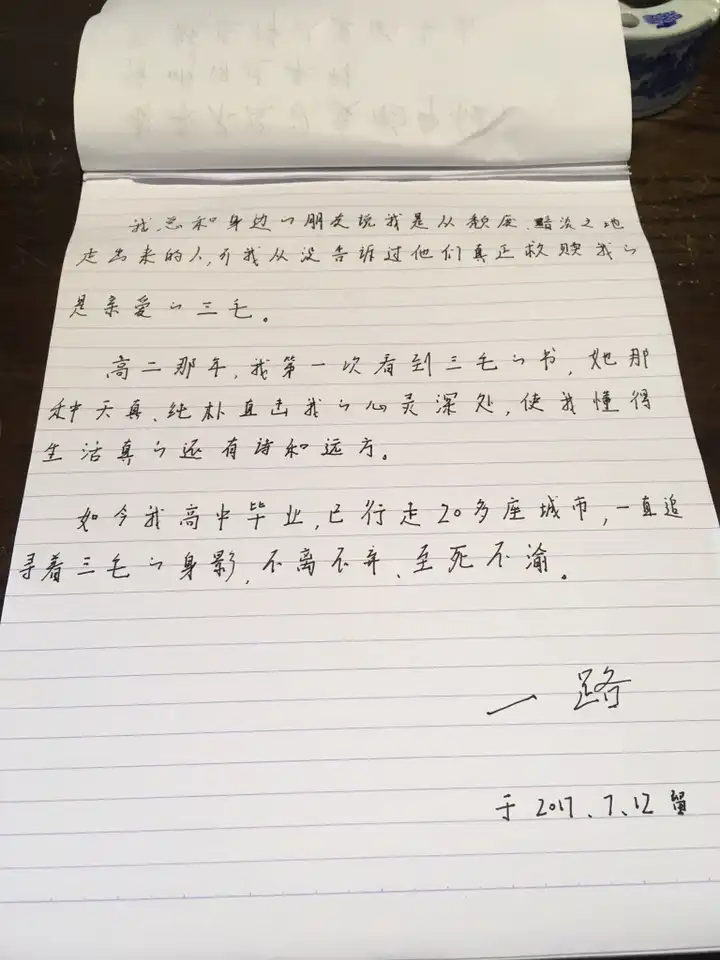 我总和身边的朋友说我是从颓废、黯淡之地
走出来的人，可我从没告诉过他们真正救赎我的
是亲爱的三毛。
高二那年，我第一次看到三毛的书，她那
种天真、纯朴直击我的心灵深处，使我懂得
生活真的还有诗和远方。
如今我高中毕业，已行走20多座城市，一直追
寻着三毛的身影，不离不弃、至死不渝。
一路
于2017、7、12留